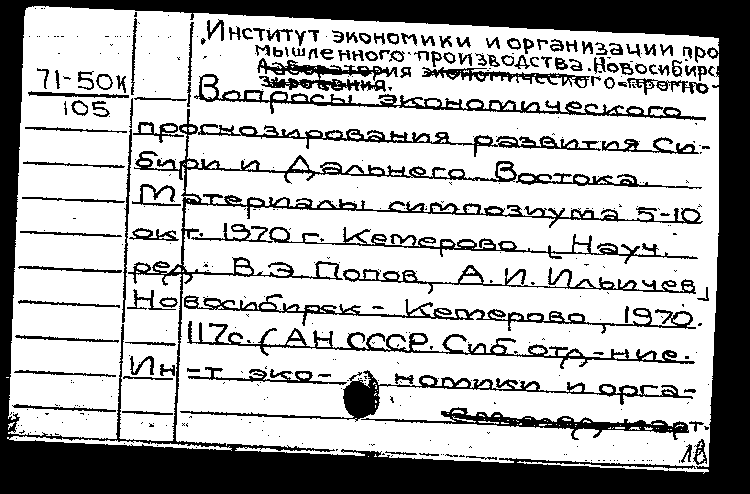 Институт экономики и организации про
мышленного производства. Новосибирск
Лаборатория экономического прогно-
зирования.
71-50к
105
Вопросы экономического
прогнозирования развития Си-
бири и Дальнего Востока.
Материалы симпозиума 5-10
окт. 1970 г. Кемерово. [Науч.
ред.: В.Э. Попов, А.И. Ильичев]
Новосибирск - Кемерово, 1970.
117с. (АН СССР. Сиб. отд-ние.
Ин-т эко- номики и орга-
т.
1В